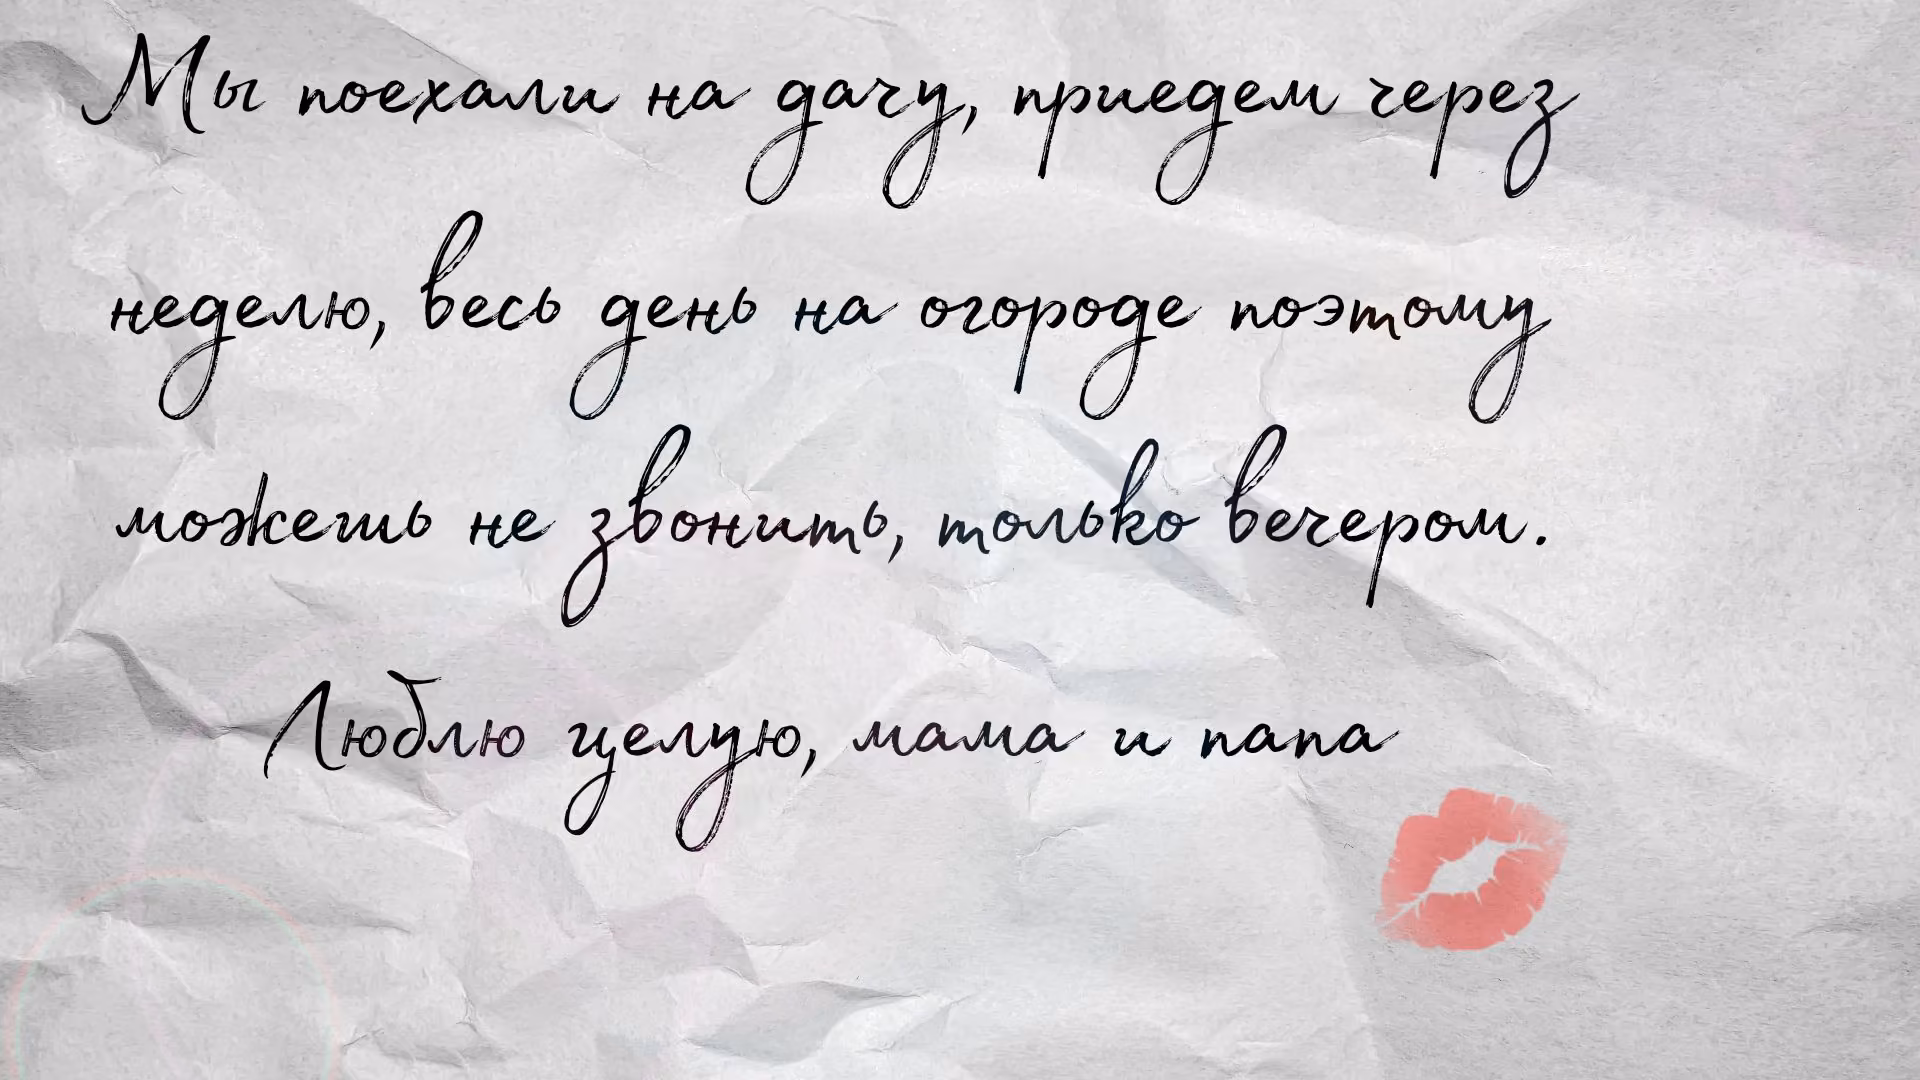 Мы поехали на дачу, приедем через
неделю, весь день на огороде поэтому
можешь не звонить, только вечером.
Люблю целую, мама и папа